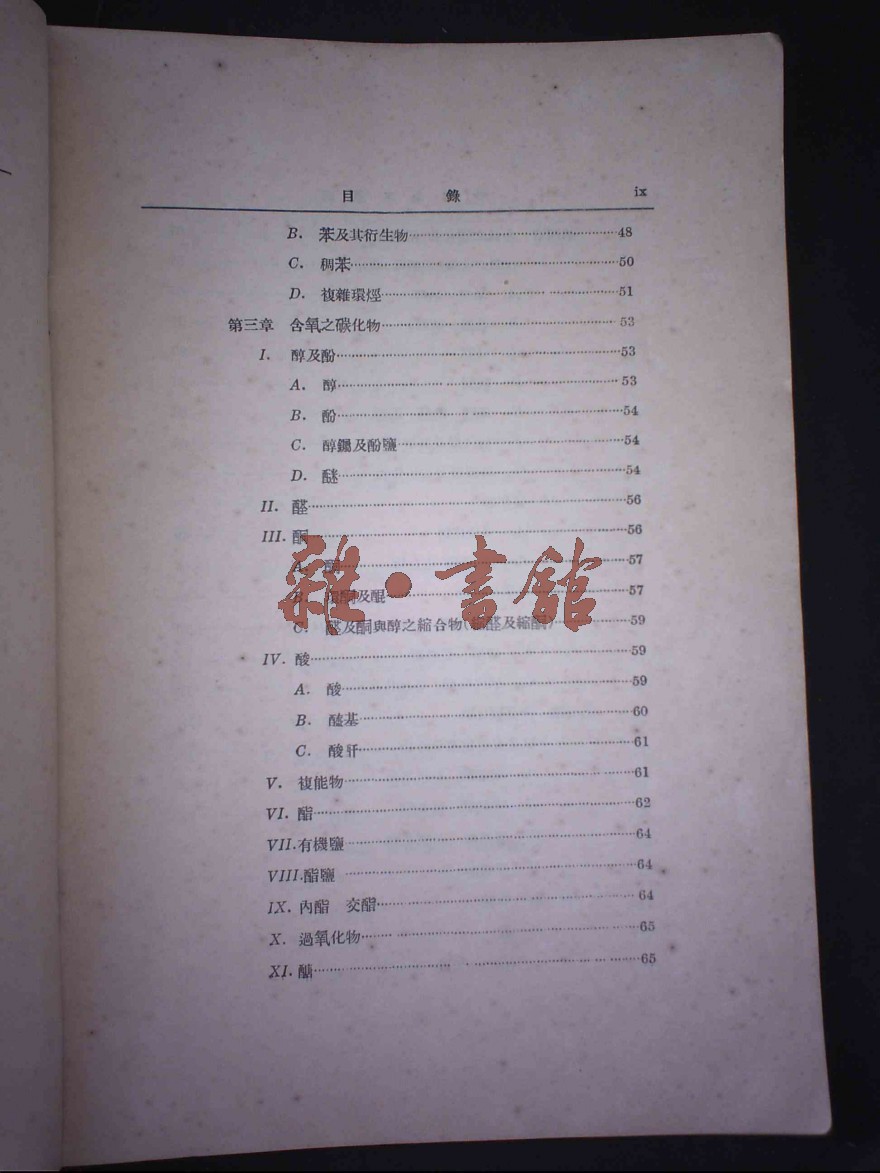 目 錄 ix
B. 苯及其衍生物 48
C. 稠苯 50
D. 複雜環烴 51
第三章 含氧之碳化物 53
I. 醇及酚 53
A. 醇 53
B. 酚 54
C. 醇鑼及酚鹽 54
D. 醚 54
II. 醛 56
III. 酮 56
A. 57
B. 及醌 57
雜·書舘
C. 醛及酮與醇之縮合物(縮醛及縮酮) 59
IV. 酸 59
A. 酸 59
B. 醯基 60
C. 酸酐 61
V. 複能物 61
VI. 酯 62
VII. 有機鹽 64
VIII. 酯鹽 64
IX. 內酯 交酯 64
X. 過氧化物 65
XI. 醣 65